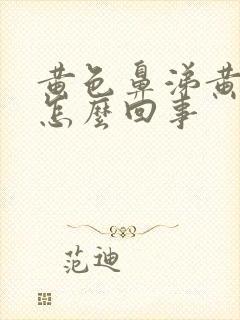 黄色鼻涕黄
怎麼回事
范迪